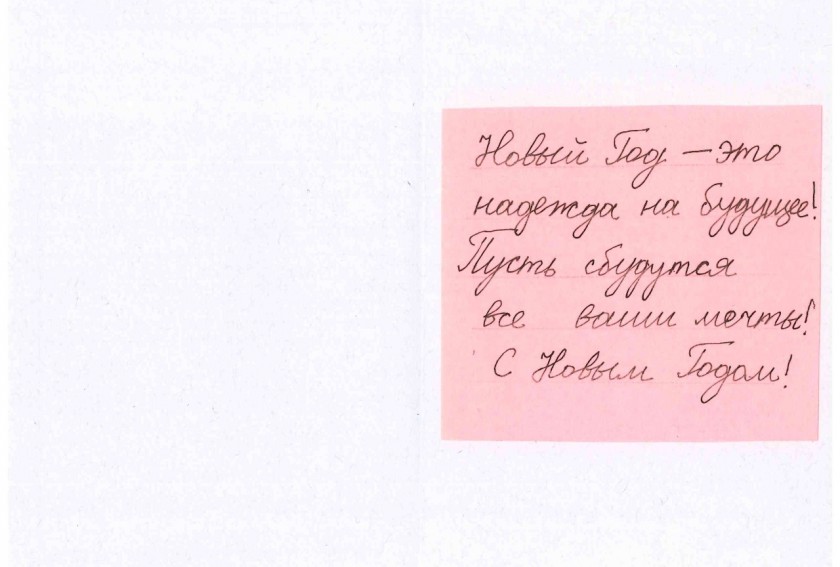 Новый Год — это
надежда на будущее!
Пусть сбудутся
все ваши мечты!
С Новым Годом!